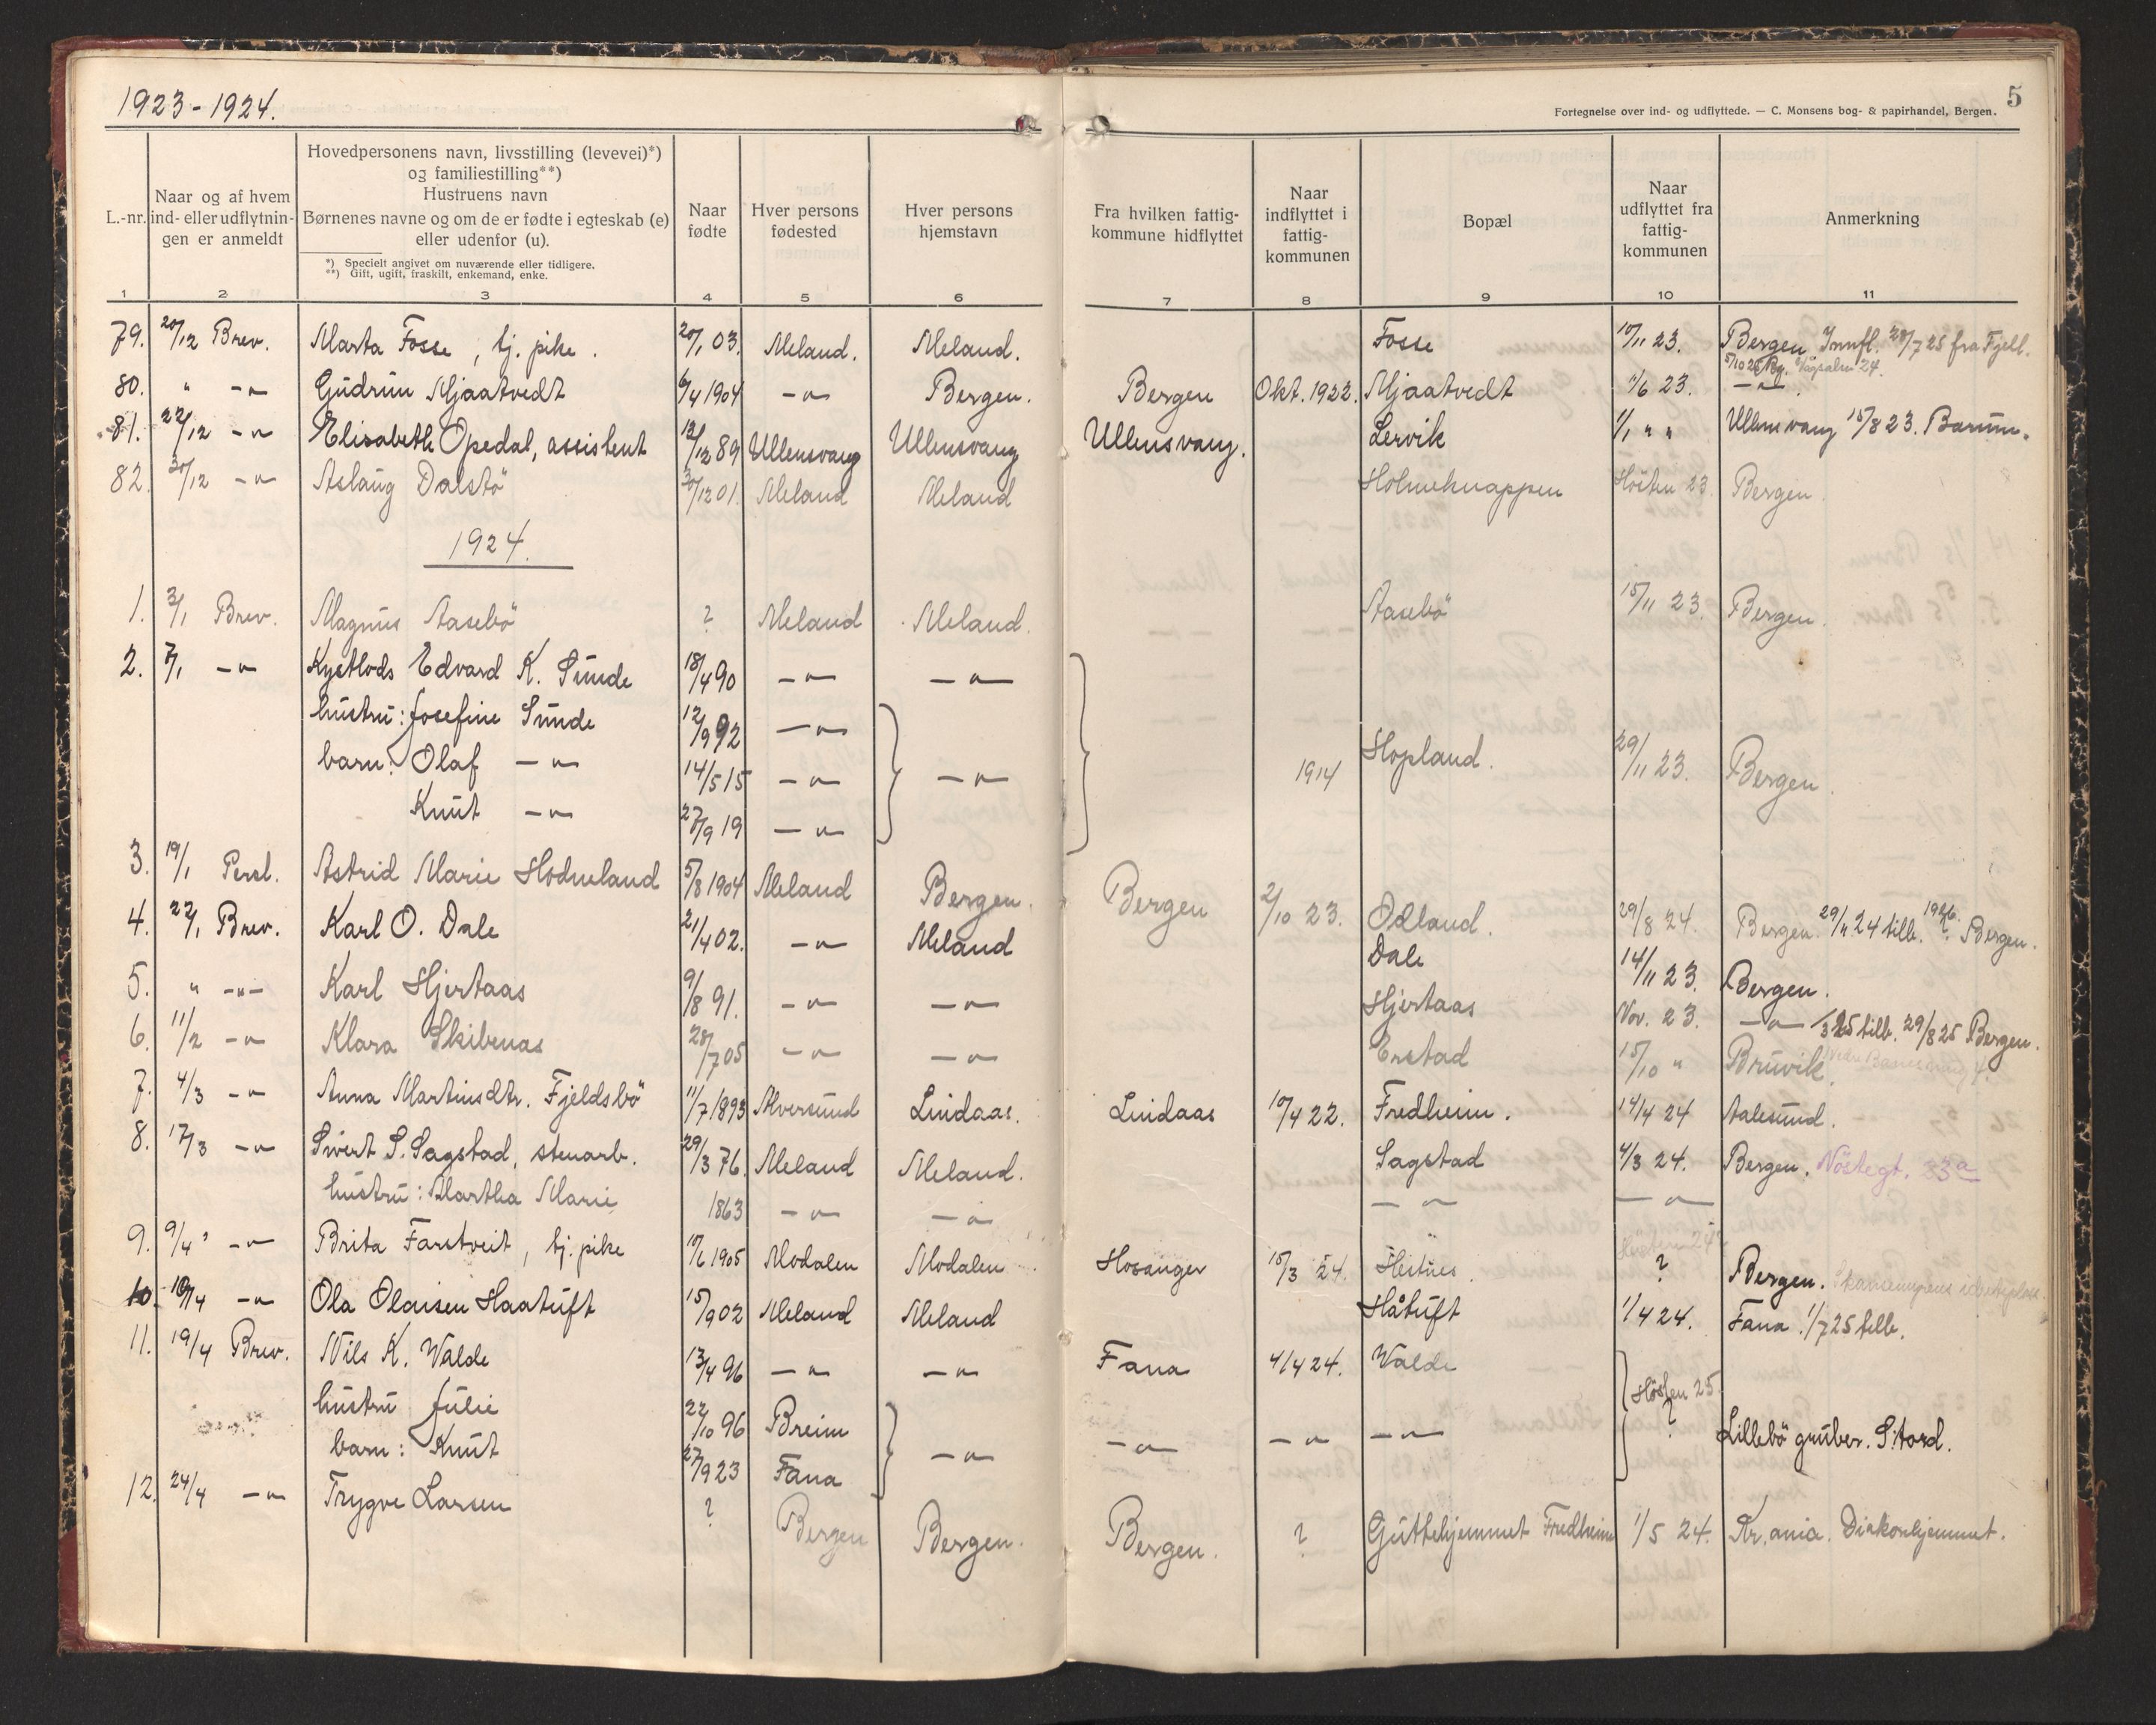 1923-1924.
5
Fortegnelse over ind- og udflyttede. — C. Monsens bog- & papirhandel, Bergen.
L.-nr. | Naar og af hvem ind- eller udflytnin-gen er anmeldt | Hovedpersonens navn, livsstilling (levevei)*) og familiestilling**) Hustruens navn Børnenes navne og om de er fødte i egteskab (e) eller udenfor (u). | Naar fødte | Hver persons fødested | Hver persons hjemstavn | Fra hvilken fattig-kommune hidflyttet | Naar indflyttet i fattig-kommunen | Bopæl | Naar udflyttet fra fattig-kommunen | Anmerkning
*) Specielt angivet om nuværende eller tidligere.
**) Gift, ugift, fraskilt, enkemand, enke.
1 2 3 4 5 6 7 8 9 10 11
79. 20/12 Brev. Marta Fosse, tj. pike. 20/1 03. Meland. Meland. Fosse 10/11 23. Bergen Innfl. 28/7 25 fra Fjell.
80. " -"- Gudrun Mjaatvedt 6/4 1904 -"- Bergen. Bergen Okt. 1922. Mjaatvedt 1/6 23. -"-
81. 22/12 -"- Elisabeth Opedal, assistent 12/12 89 Ullensvang Ullensvang Ullensvang. Lervik 1/1 " " Ullensvang 15/8 23. Barum.
82. 30/12 -"- Aslaug Dalstö 30/12 01. Meland Meland Holmeknappen Hösten 23 Bergen.
1924.
1. 3/1 Brev. Magnus Aasebö ? Meland Meland. Aasebö 15/11 23. Bergen.
2. 7/1 -"- Kystlods Edvard K. Sunde 18/4 90 -"- -"-
hustru: Josefine Sunde 12/9 92 -"-
barn: Olaf -"- 14/5 15 -"- -"- 1914 Hopland. 29/11 23. Bergen.
Knut -"- 27/9 19 -"-
3. 19/1 Persl. Astrid Marie Hodneland 5/8 1904 Meland Bergen. Bergen 2/10 23. Odland. 29/8 24. Bergen. 29/11 24 tilb. 1926. ? Bergen.
4. 22/1 Brev. Karl O. Dale 21/4 02. -"- Meland Dale 14/11 23. Bergen.
5. " -"- Karl Hjertaas 9/8 91. -"- -"- Hjertaas Nov. 23. -"- 1/3 25 tilb. 29/8 25 Bergen.
6. 11/2 -"- Klara Skibenas 28/7 05 -"- -"- Erstad 15/10 " Bruvik.
7. 4/3 -"- Anna Martinsdtr. Fjeldsbö 11/7 1893 Alversund Lindaas. Lindaas 10/4 22. Fredheim. 14/4 24 Aalesund.
8. 17/3 -"- Sivert S. Sagstad, stenarb. 29/3 76. Meland Meland. Sagstad 4/3 24. Bergen. Nöstegt. 33a
hustru: Martha Marie 1863 -"- -"- -"- -"-
9. 9/4 -"- Brita Farstveit, tj. pike 10/6 1905 Modalen Modalen Hosanger 15/3 24. ? Bergen.
10. 10/4 -"- Ola Olaisen Haatuft 15/9 02 Meland Meland Håtuft 1/4 24. Fana. 1/7 25 tilb.
11. 19/4 Brev. Nils K. Valde 13/4 96 -"- -"- Fana 4/4 24. Valde Hösten 25
hustru Julie 22/10 96 Breim ?
barn: Knut 27/9 23 Fana -"- -"- -"- -"- Lillebö gruber. Stord.
12. 24/4 -"- Trygve Larsen ? Bergen Bergen. Bergen. ? Guttehjemmet Fredheim 1/5 24. Kr.ania. Diakonhjemmet.